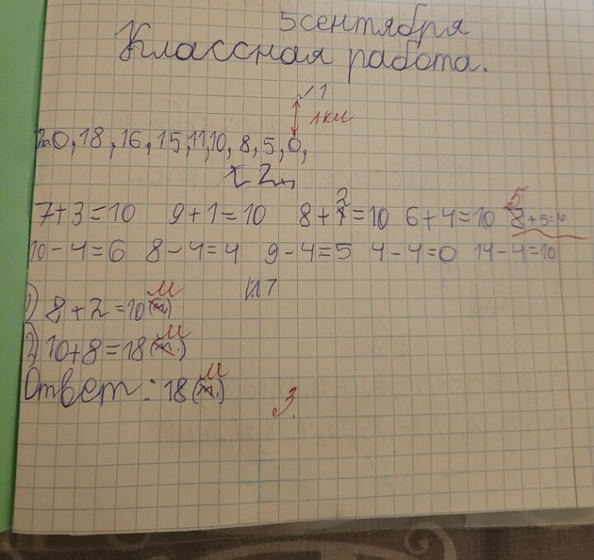 5 сентября
Классная работа.
√1
1 кл
20, 18, 16, 15, 11, 10, 8, 5, 0,
√2
2
5
7+3=10 9+1=10 8+1=10 6+4=10 8+5=10
10-4=6 8-4=4 9-4=5 4-4=0 14-4=10
м
1) 8+2=10(м)
м
2) 10+8=18(м.)
м
Ответ: 18(м.)
3